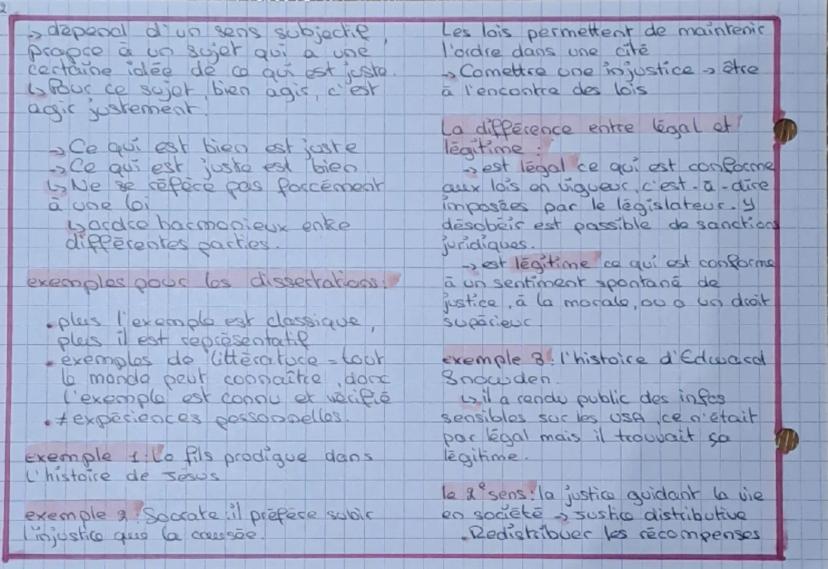 2
↳ dépend d'un sens subjectif,
propre à un sujet qui a une
certaine idée de ce qui est juste.
↳ Pour ce sujet, bien agir, c'est
agir justement.
→ Ce qui est bien est juste
→ Ce qui est juste est bien
↳ Ne se réfère pas forcément
à une loi
↳ ordre harmonieux entre
différentes parties.
exemples pour les dissertations :
• plus l'exemple est classique,
plus il est représentatif
• exemples de littérature = tout
le monde peut connaître, donc
l'exemple est connu et vérifié
• ≠ expériences personnelles.
exemple 1 : le fils prodigue dans
l'histoire de Jésus
exemple 2 : Socrate, il préfère subir
l'injustice que la causée.
Les lois permettent de maintenir
l'ordre dans une cité
→ Comettre une injustice → être
à l'encontre des lois
La différence entre légal et
légitime :
→ est légal ce qui est conforme
aux lois en vigueur, c'est-à-dire
imposées par le législateur. y
désobéir est passible de sanctions
juridiques.
→ est légitime ce qui est conforme
à un sentiment spontané de
justice, à la morale, ou à un droit
supérieur
exemple 3 : l'histoire d'Edward
Snowden.
↳ il a rendu public des infos
sensibles sur les USA, ce n'était
pas légal mais il trouvait sa
légitime.
le 2e sens : la justice guidant la vie
en société → justice distributive
. Redistribuer les récompenses